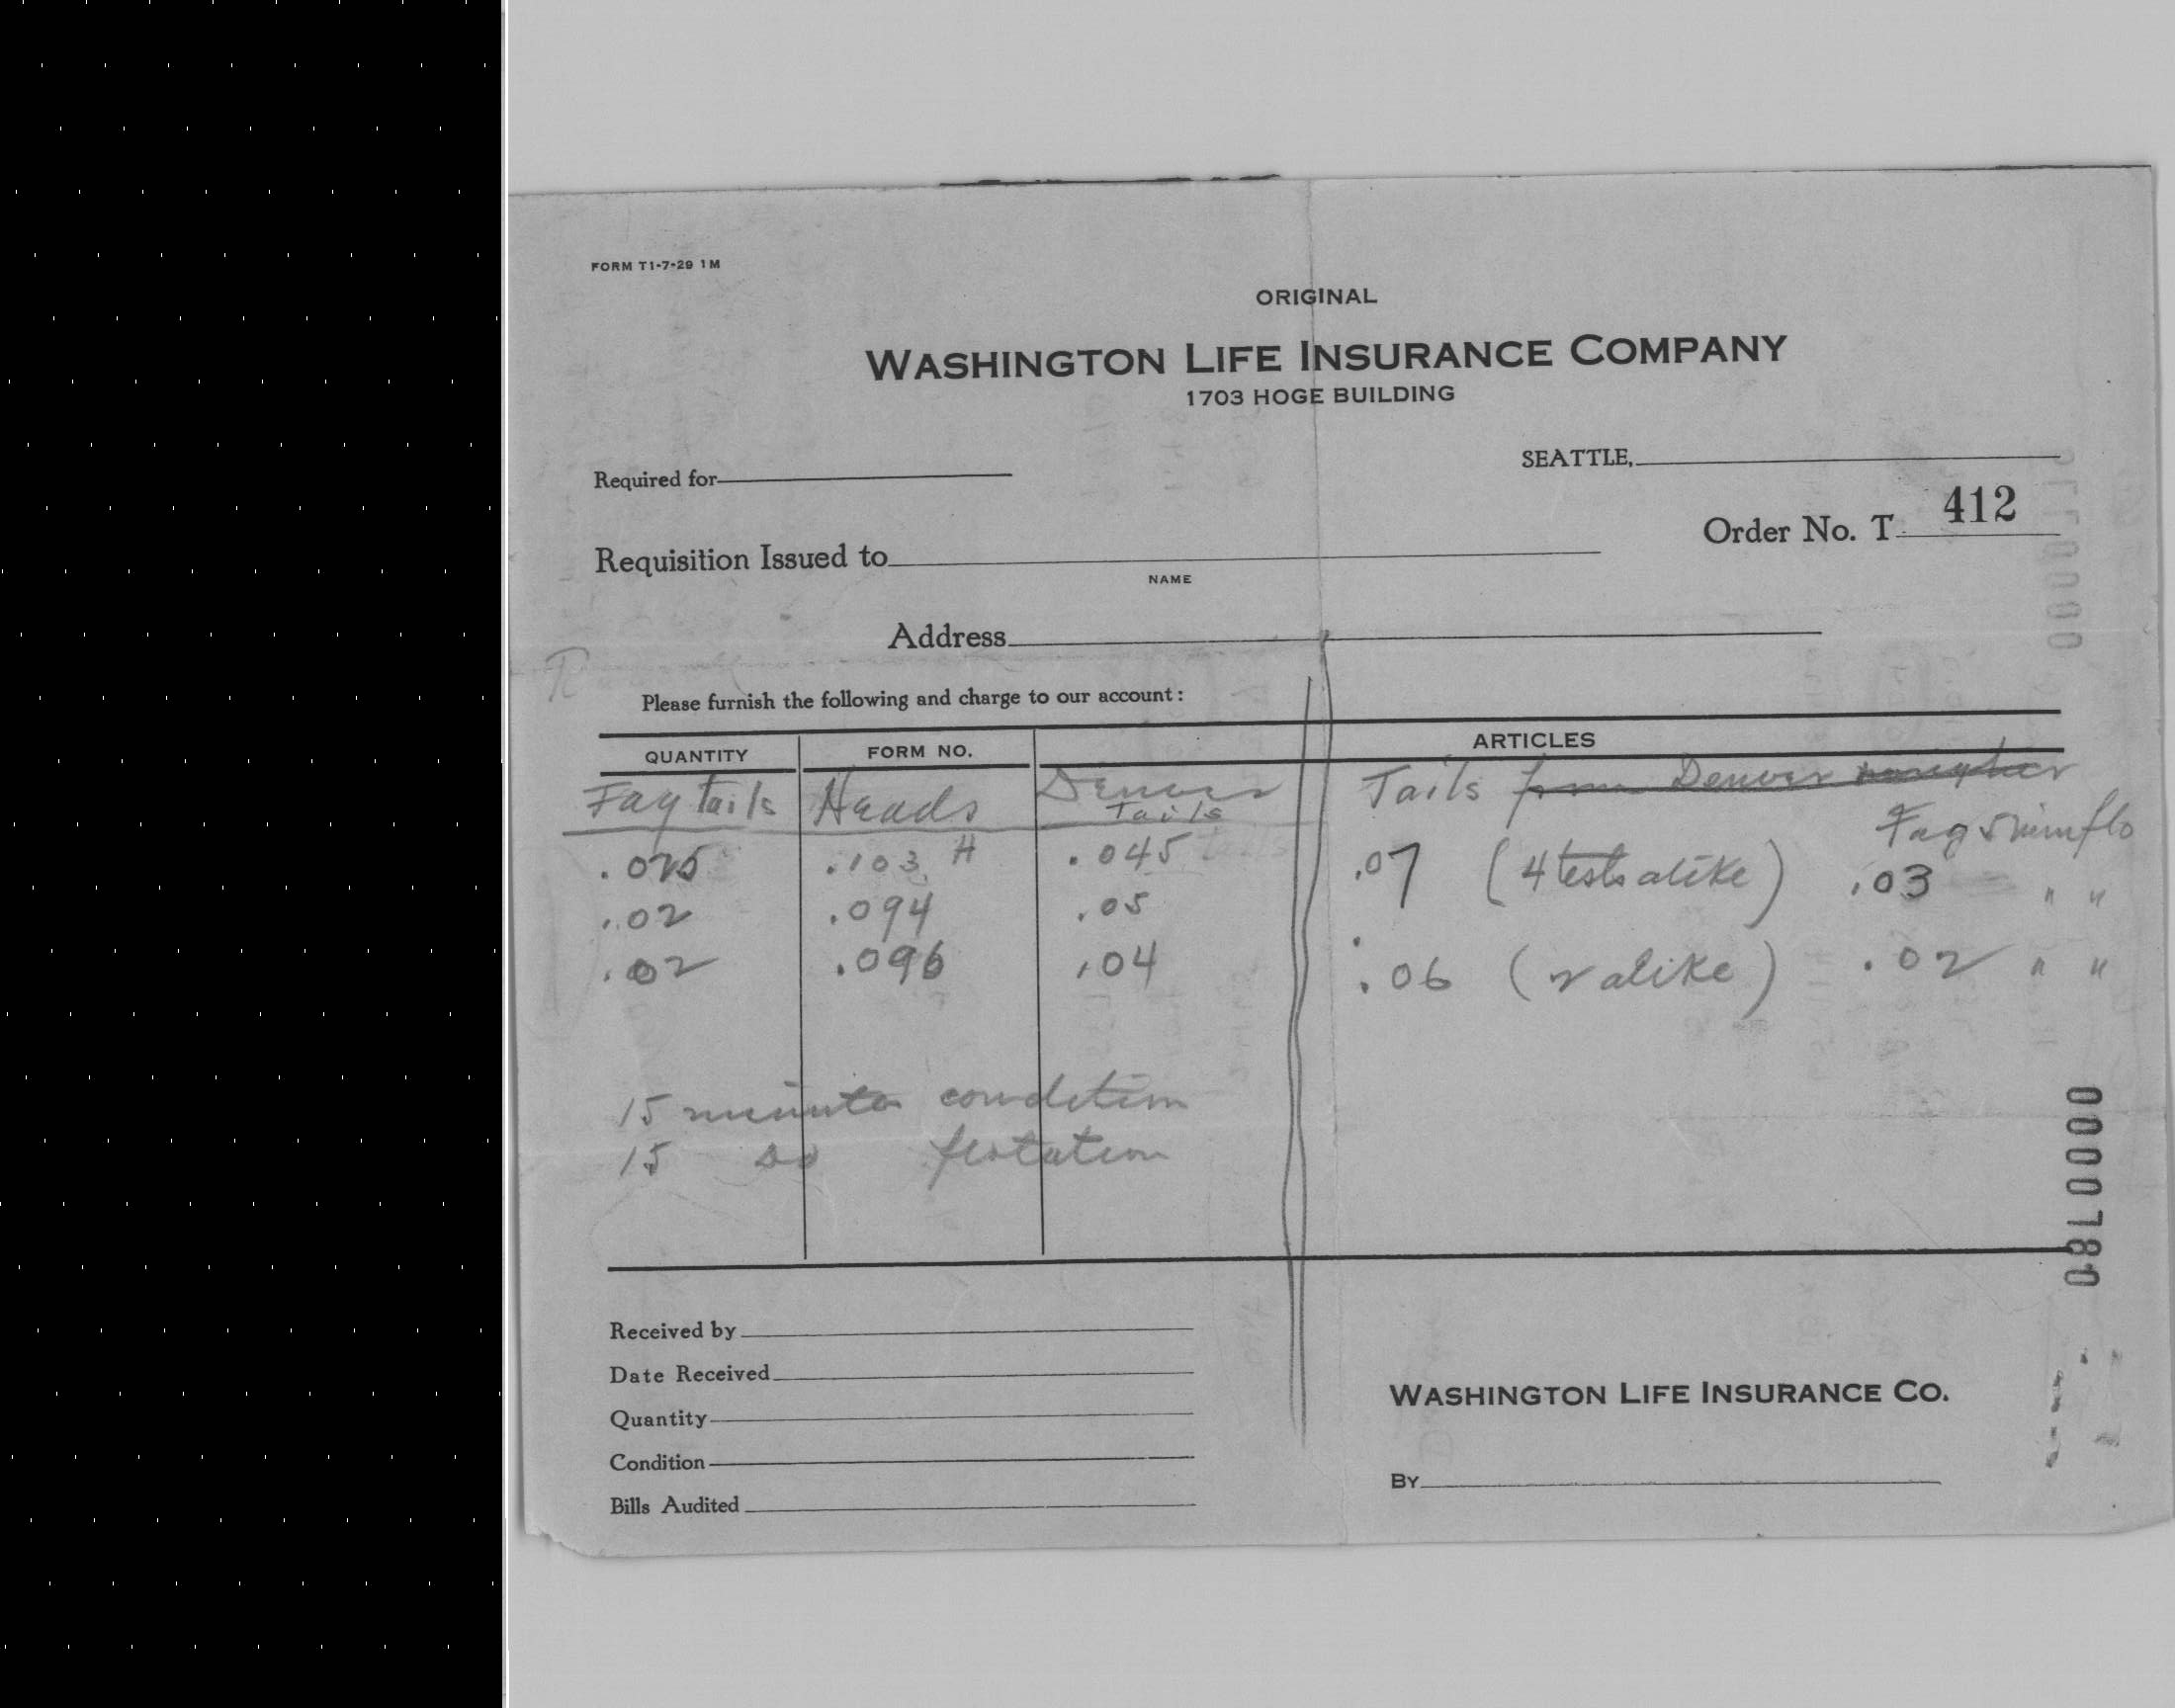 FORM T1-7-29 1M
ORIGINAL
WASHINGTON LIFE INSURANCE COMPANY
1703 HOGE BUILDING
SEATTLE,
Required for
Order No. T 412
Requisition Issued to
NAME
Address
Please furnish the following and charge to our account:
QUANTITY FORM NO. ARTICLES
Fag tails Heads Denver Tails Tails from Denver
Fag 5 min flo
.025 .103 H .045 .07 (4 tests alike) .03 " "
.02 .094 .05
.02 .096 .04 .06 (2 alike) .02 " "
15 minutes condition
15 do flotation
0000180
Received by
Date Received
Quantity
Condition
Bills Audited
WASHINGTON LIFE INSURANCE CO.
BY